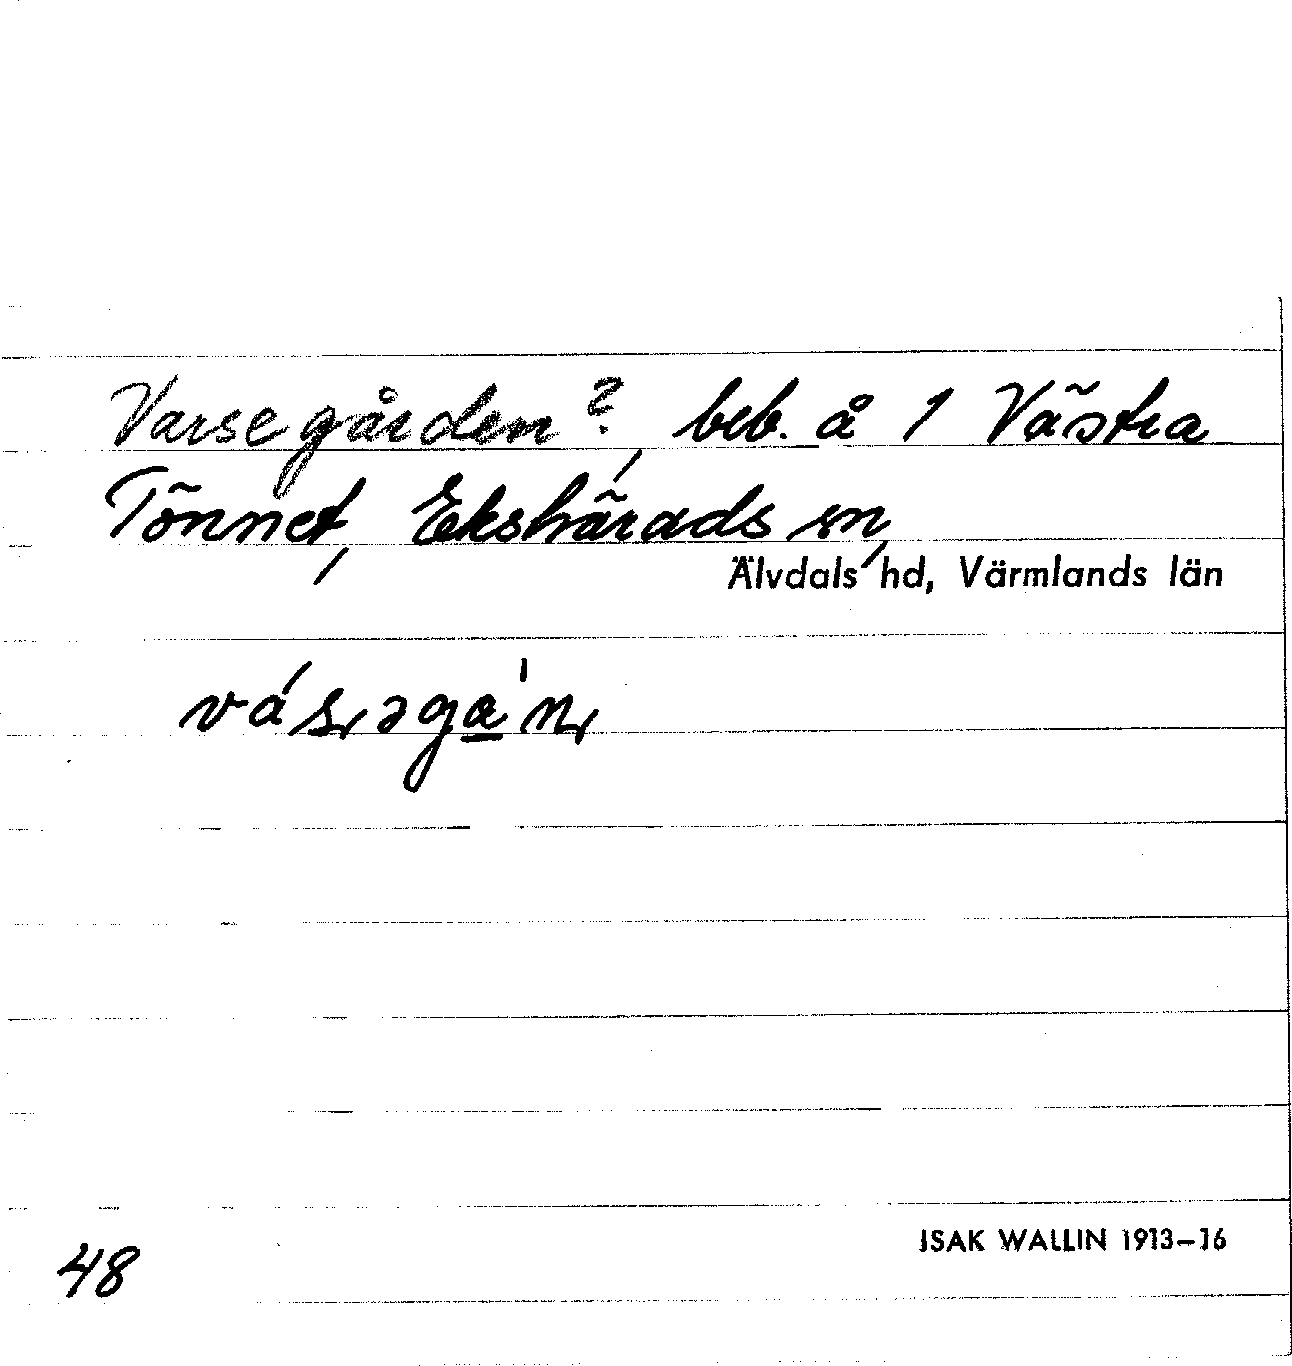 Varsegården?, beb. å 1 Västra
Tönnet, Ekshärads sn,
Älvdals hd, Värmlands län
vás̢əga̲'n̢
48
ISAK WALLIN 1913–16